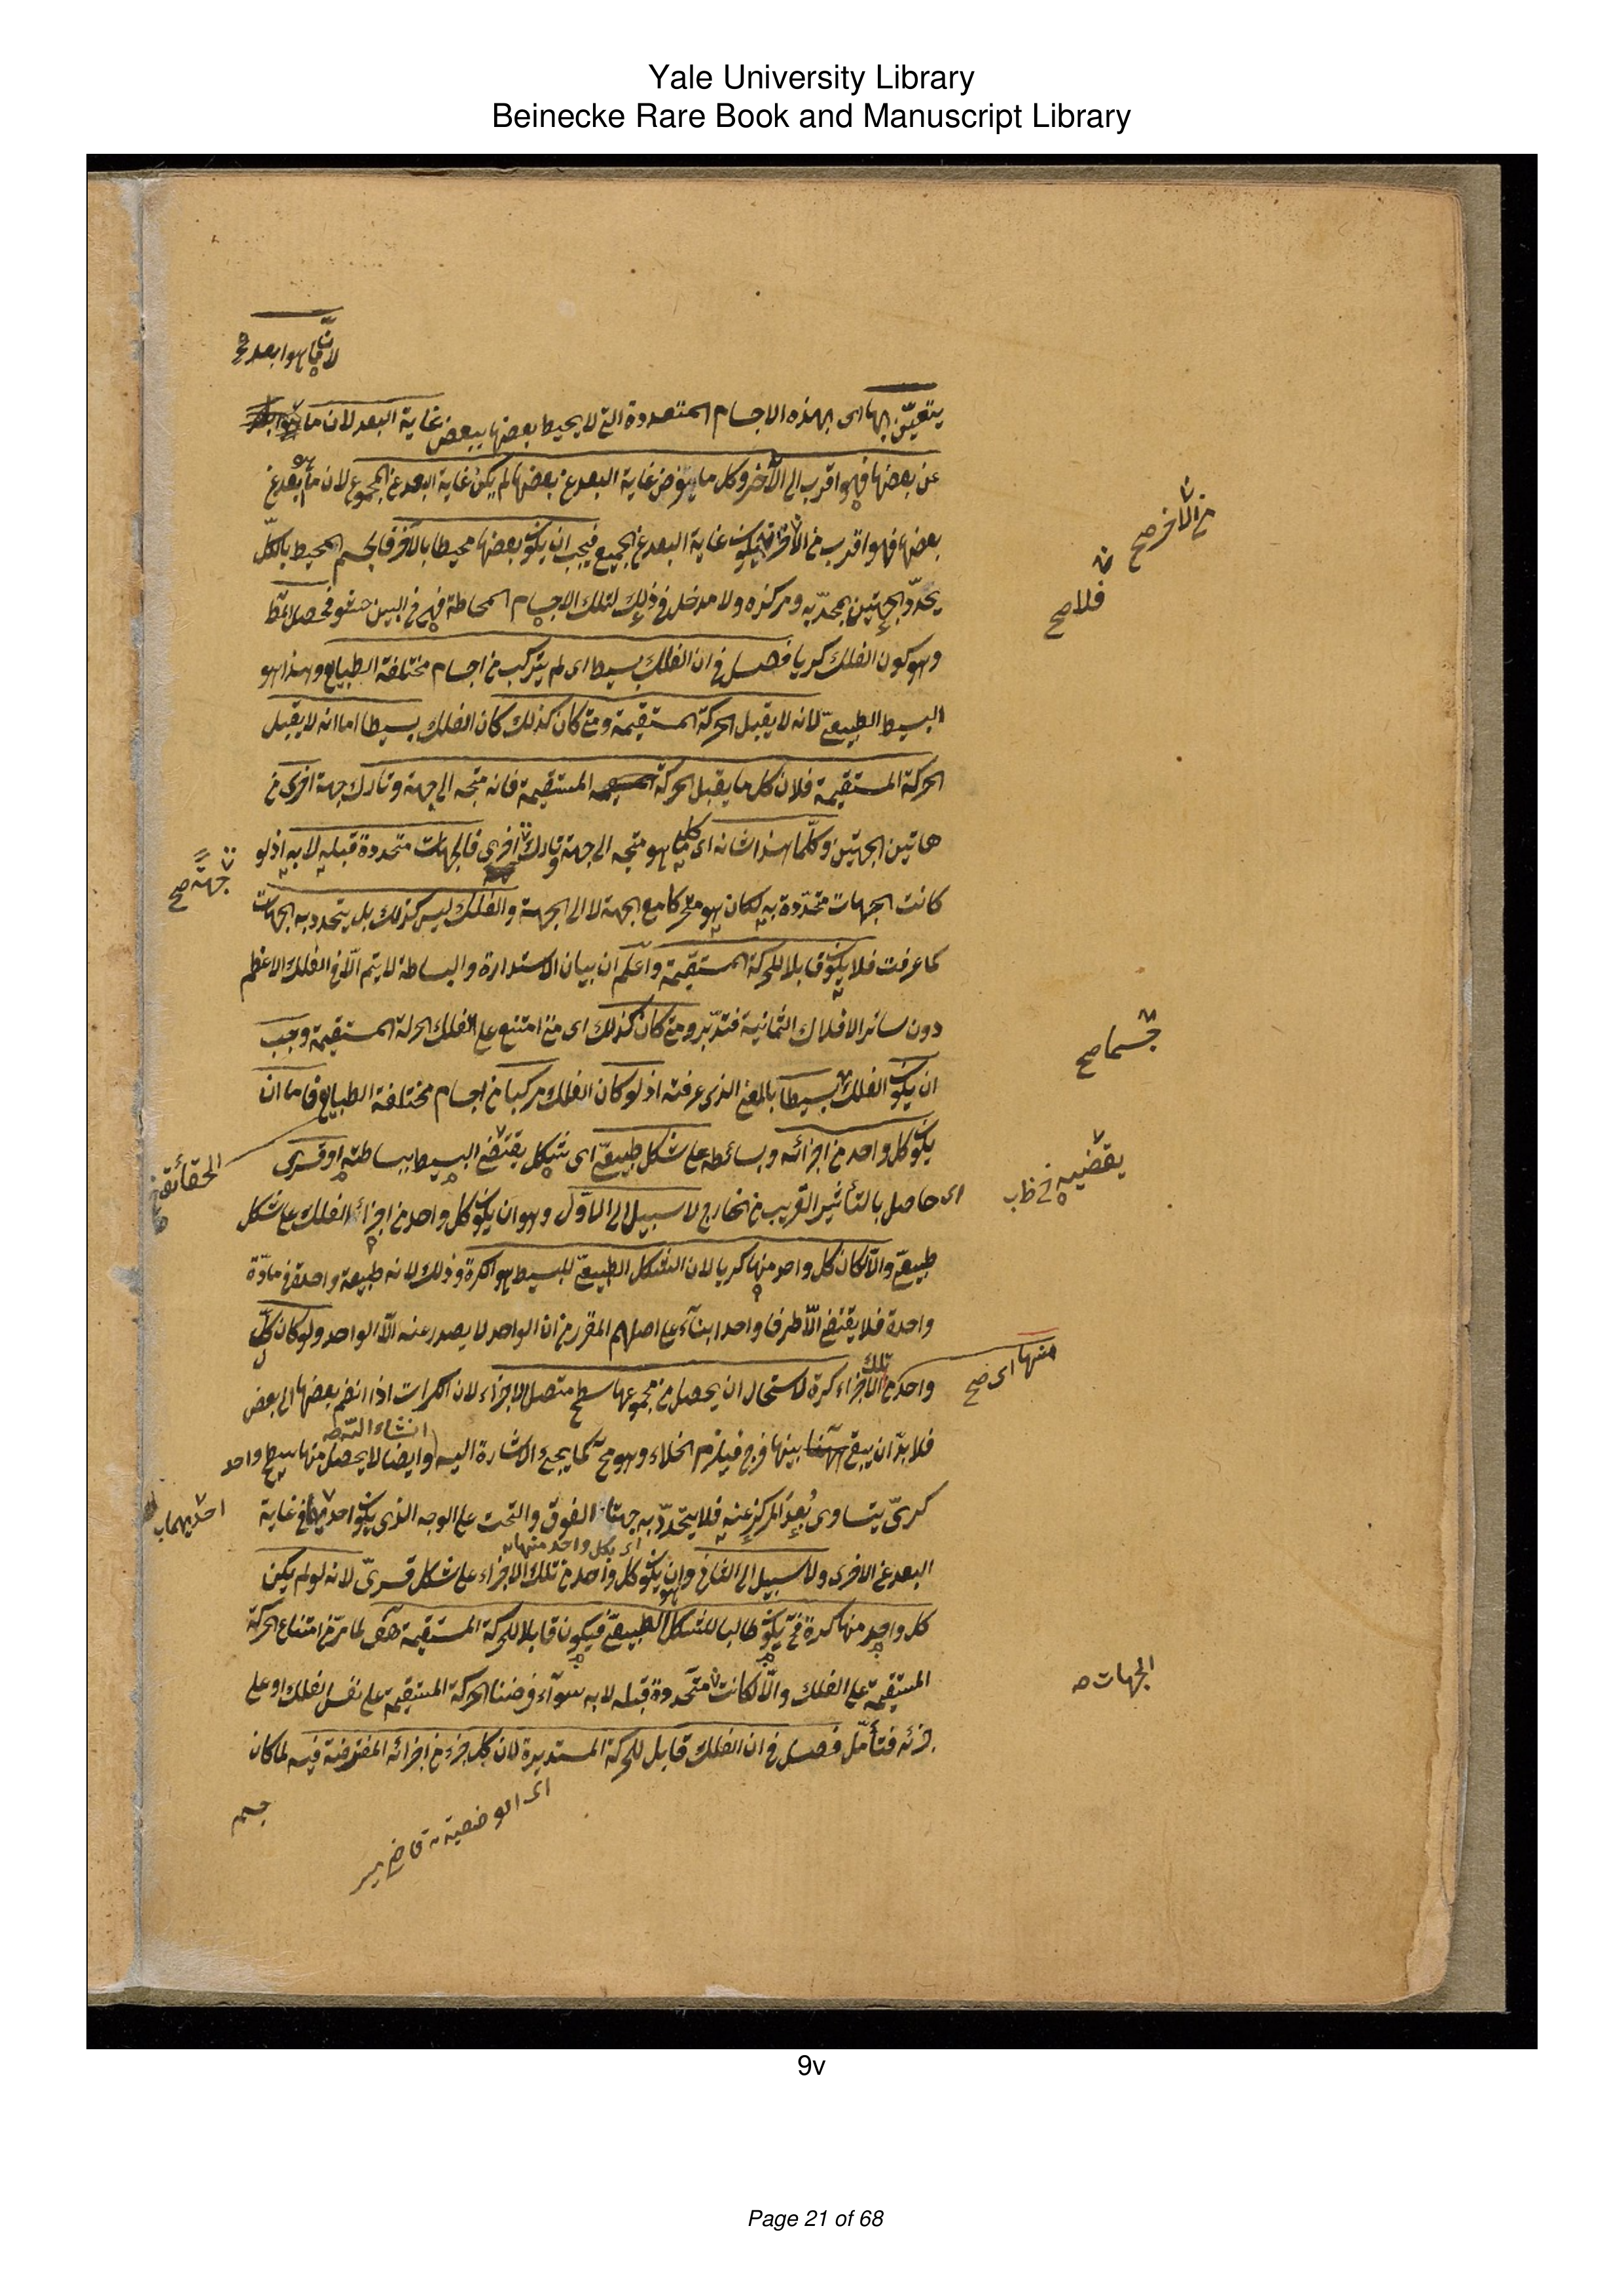 Yale University Library
Beinecke Rare Book and Manuscript Library
لان ما هو ابعد
يتعيّن بها اى بهذه الاجسام المتعددة التى لا يحيط بعضها ببعض غاية البعد لان ما
عن بعضها فهو اقرب الى الآخر وكل ما يفرض غاية البعد عن بعضها لم يكن غاية البعد عن المجموع لان ما هو بعد عن
بعضها فهو اقرب من الآخر فلا يكون غاية البعد عن الجميع فيجب ان يكون بعضها محيطا بالآخر فالجسم المحيط بالكلّ
من الآخر صح
فلا صح
يحدّد الجهتين بمحدّبه ومركزه ولا مدخل فى ذلك لتلك الاجسام المحاطة فهى فى البين حشو فحصل المط
وهو كون الفلك كريا فصل فى ان الفلك بسيط اى لم يتركب من اجسام مختلفة الطبايع وهذا هو
البسيط الطبيعىّ لانه لا يقبل الحركة المستقيمة ومتى كان كذلك كان الفلك بسيطا اما انه لا يقبل
الحركة المستقيمة فلان كل ما يقبل الحركة المستقيمة فانه متجه الى جهة وتارك جهة اخرى من
هاتين الجهتين وكلّما هذا شانه اى كل ما هو متجه الى جهة وتارك اخرى فالجهات متحددة قبله لا به اذ لو
جهة صح
كانت الجهات متحدّدة به لكان هو متحركا مع الجهة لا الى الجهة والفلك ليس كذلك بل يتحدد به الجهات
كما عرفت فلا يكون قابلا للحركة المستقيمة واعلم ان بيان الاستدارة والبساطة لا يتم الّا فى الفلك الاعظم
دون سائر الافلاك الثمانية فتدبّر ومتى كان كذلك اى متى امتنع على الفلك الحركة المستقيمة وجب
جسما صح
ان يكون الفلك بسيطا بالمعنى الذى عرفته اذ لو كان الفلك مركبا من اجسام مختلفة الطبايع فاما ان
يكون كل واحد من اجزائه وبسائطه على شكل طبيعىّ اى شكل يقتضى البسيط ببساطته او قسرى
الحقائق
يقتضيه
اى حاصل بالتأثير القريب من خارج لا سبيل الى الاوّل وهو ان يكون كل واحد من اجزاء الفلك على شكل
طبيعىّ والّا لكان كل واحد منها كريا لان الشكل الطبيعىّ للبسيط هو الكرة وذلك لانه طبيعة واحدة فى مادّة
واحدة فلا يقتضى الّا طرفا واحدا بنآء على اصلهم المقرر من ان الواحد لا يصدر عنه الّا الواحد ولو كان كلّ
منها اى صح
واحد من تلك الاجزاء كرة لاستحال ان يحصل من مجموعها سطح متصل الاجزاء لان الكرات اذا انضم بعضها الى بعض
ان شاء الله تعالى
فلا بدّ ان يبقى بينها فرج فيلزم الخلاء وهو مح كما يجىء الاشارة اليه وايضا لا يحصل منها سطح واحد
كرىّ يتساوى بُعد المركز عنه فلا يتحدّد به جهتا الفوق والتحت على الوجه الذى يكون احديهما فى غاية
احديهما
اى يكل واحد منها
البعد عن الاخرى ولا سبيل الى الثانى وان يكون كل واحد من تلك الاجزاء على شكل قسرىّ لانه لو لم يكن
كل واحد منها كرة فح يكون طالبا للشكل الطبيعىّ فيكون قابلا للحركة المستقيمة هف لما مرّ من امتناع الحركة
المستقيمة على الفلك والّا لكانت متحددة قبله لا به سوآء فرضنا الحركة المستقيمة على نفس الفلك او على
الجهات
جزئه فتأمّل فصل فى ان الفلك قابل للحركة المستديرة لان كل جزء من اجزائه المفترضة فيه لما كان
اى الوضعية قاضى مير
جسم
9v
Page 21 of 68